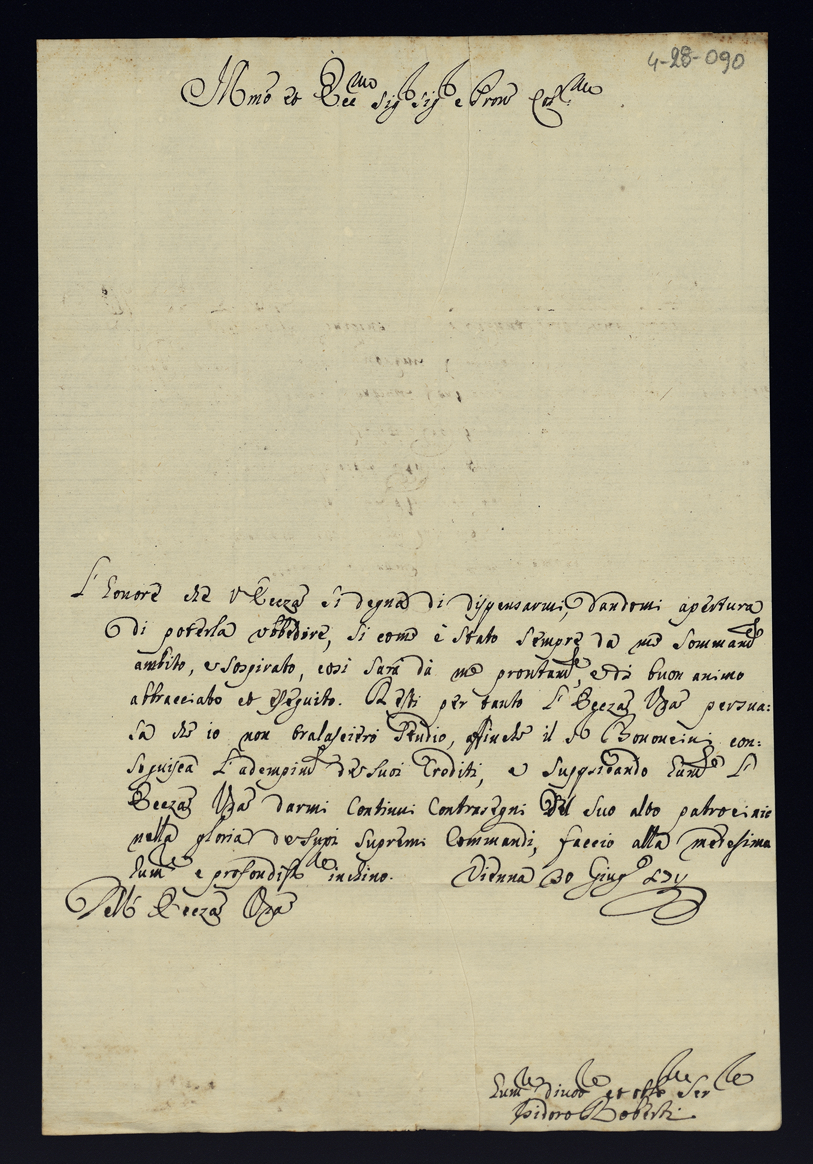 4-28-090
Illmo et Ecc.mo Sig.r Sig.r e Pron Col.mo
L'honore che V Eccza si degna di dispensarmi, dandomi apertura
di poterla ubbedire, si come è stato sempre da me sommam.e
ambito, e sospirato, così sarà dà me prontam.e, e di buon animo
abbracciato et eseguito. Resti per tanto l'Eccza Vra persua:
sa che io non tralascierò studio, affinche il S.r Bononcini con:
seguisca l'adempim.to de suoi Crediti, e supplicando hum.e l'
Eccza Vra darmi continui contrasegni del suo alto patrocinio
nella gloria de suoi supremi Commandi, faccio alla medesima
hum.e e profondiss.e inchino. Vienna 30 Giug.o
Dell' Eccza Vra
hum.e divot.e et obb.mo Ser.e
Isidoro Roberti